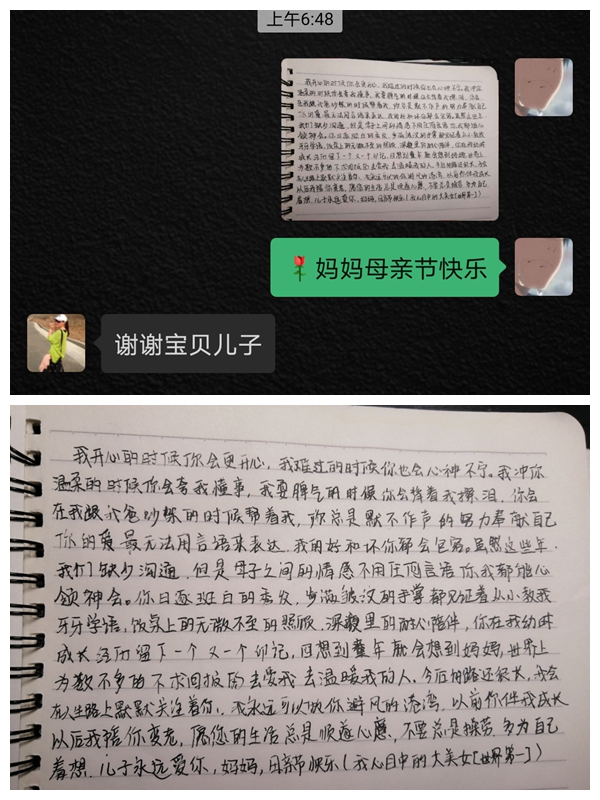 上午6:48
🌹妈妈母亲节快乐
谢谢宝贝儿子
我开心的时候你会更开心，我难过的时候你也会心神不宁。我冲你
温柔的时候你会夸我懂事，我耍脾气的时候你会背着我擦泪，你会
在我跟我爸吵嘴的时候帮着我，你总是默不作声的努力奉献自己
你的爱最无法用言语来表达，我的好和坏你都会包容。虽然这些年
我们缺少沟通，但是母子之间的情感不用任何言语你我都能心
领神会。你日逐斑白的鬓发，步满皱纹的手掌都见证着从小教我
牙牙学语，饭桌上的无微不至的照顾，深夜里的耐心陪伴，你在我幼时
成长经历留下一个又一个印记，回想到童年就会想到妈妈，世界上
为数不多的不求回报的去爱我去温暖我的人，今后的路还很长，我会
在人生路上默默关注着你，我永远可以的你避风的港湾，以前你伴我成长
以后我陪你变老，愿您的生活总是顺遂心愿，不要总是操劳，多为自己
着想，儿子永远爱你，妈妈，母亲节快乐（我心目中的大美女[世界第一]）